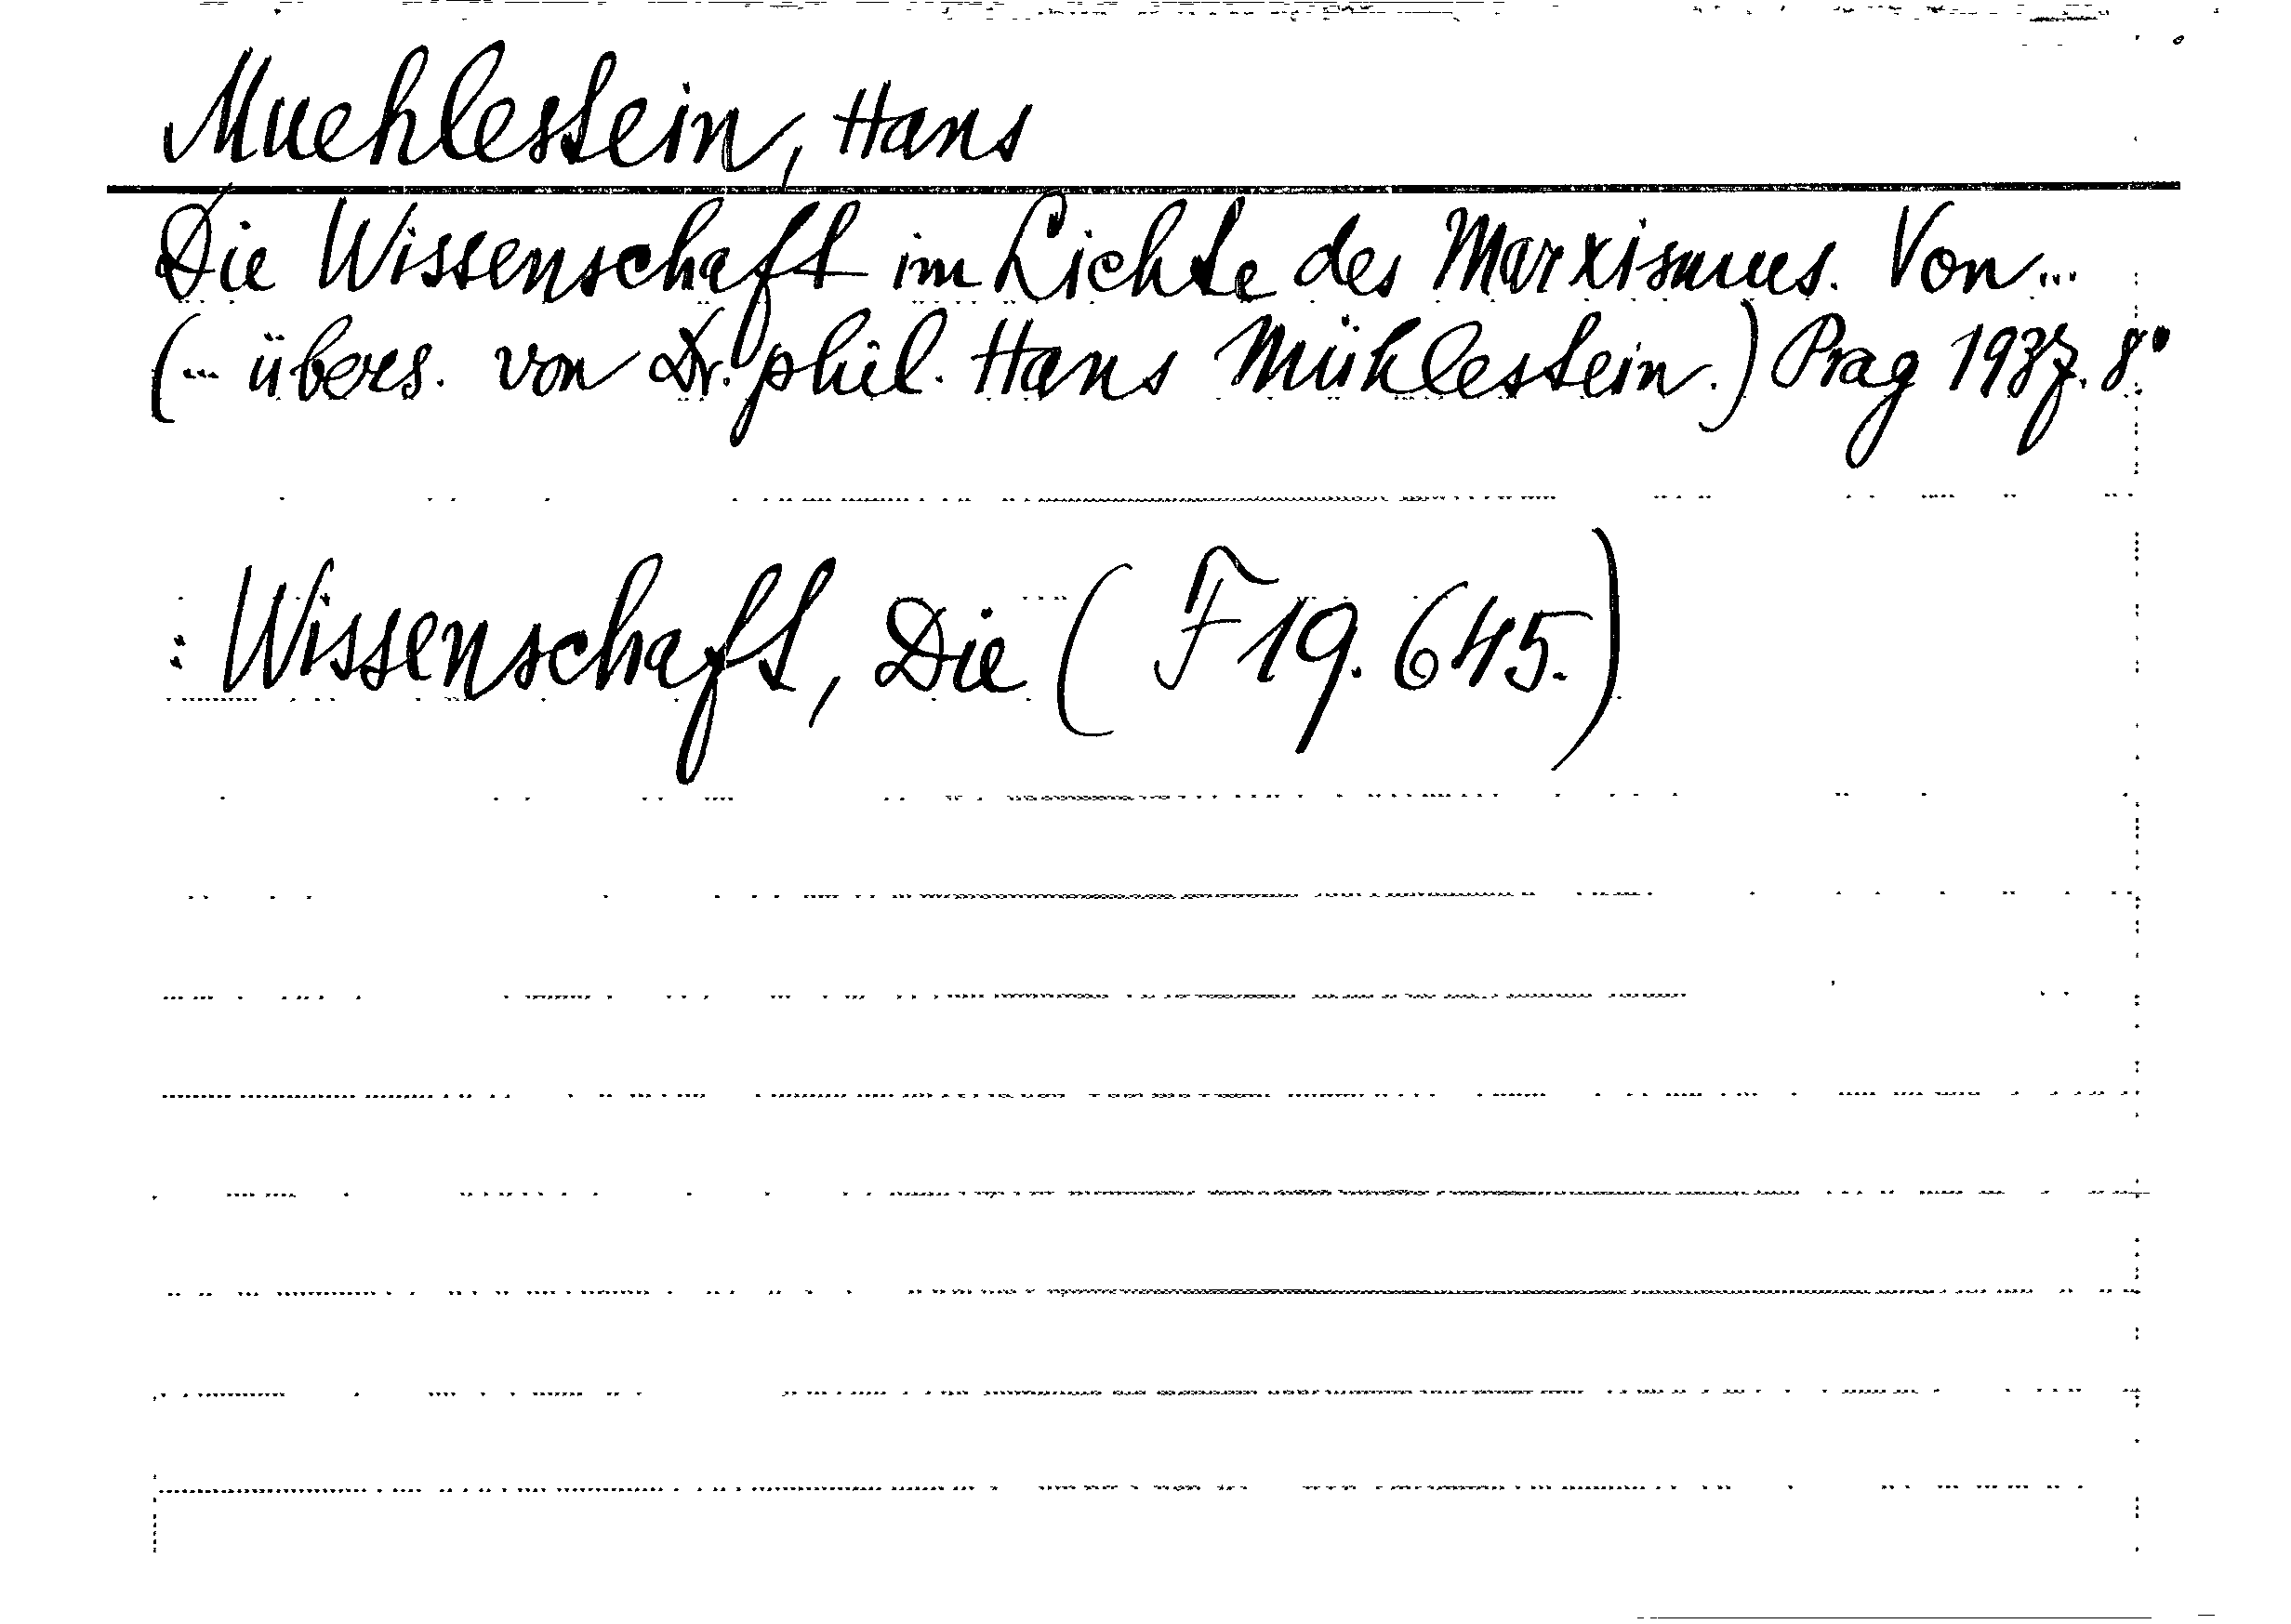 Muehlestein, Hans
Die Wissenschaft im Lichte des Marxismus. Von...
(... übers. von Dr. phil. Hans Mühlestein.) Prag 1937. 8°.
: Wissenschaft, Die (F 19.645.)